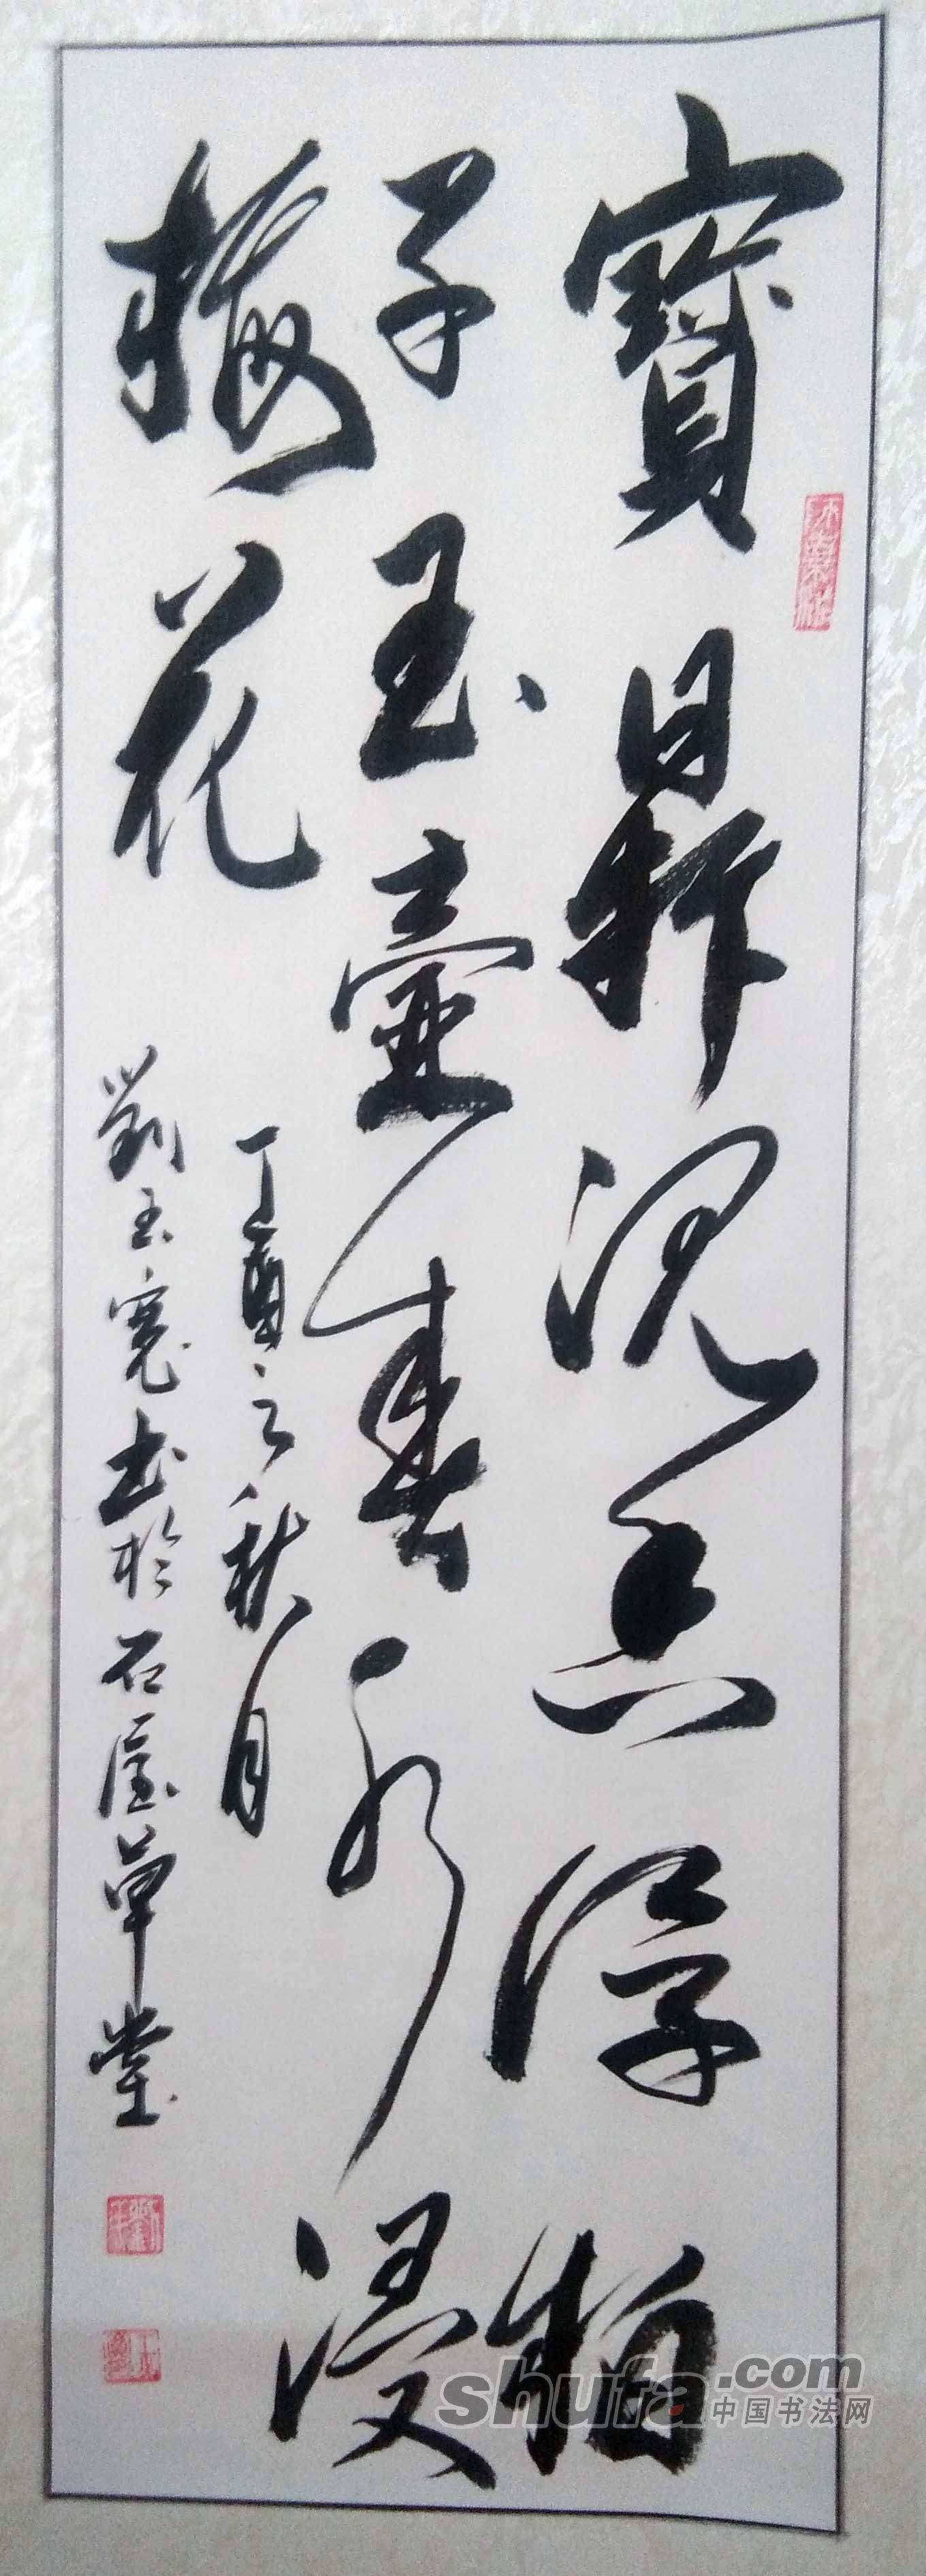 寶鼎沉香浮柏
子玉壺春水浸
梅花
丁酉之秋月
劉玉寬书於石屋草堂
shufa.com
中国书法网